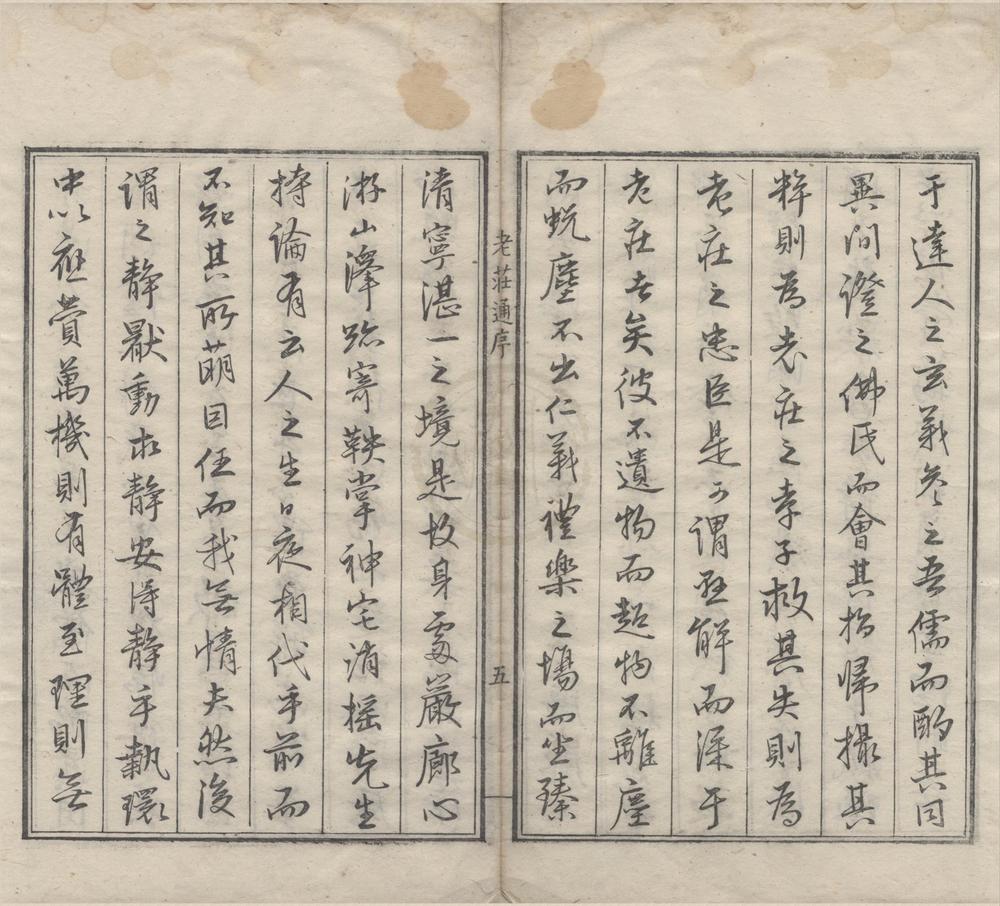 于達人之玄義參之吾儒而酌其同
異間證之佛氏而會其指歸撮其
粹則為老莊之孝子救其失則為
老莊之忠臣是可謂亟解而深于
老莊者矣彼不遺物而超物不離塵
而蛻塵不出仁義禮樂之場而坐臻
老莊通序
五
清寧湛一之境是故身處巖廊心
游山澤跡寄鞅掌神宅逍搖先生
持論有云人之生日夜相代乎前而
不知其所萌因任而我無情夫然後
謂之靜厭動求靜安得靜乎執環
中以應賞萬機則有體至理則無